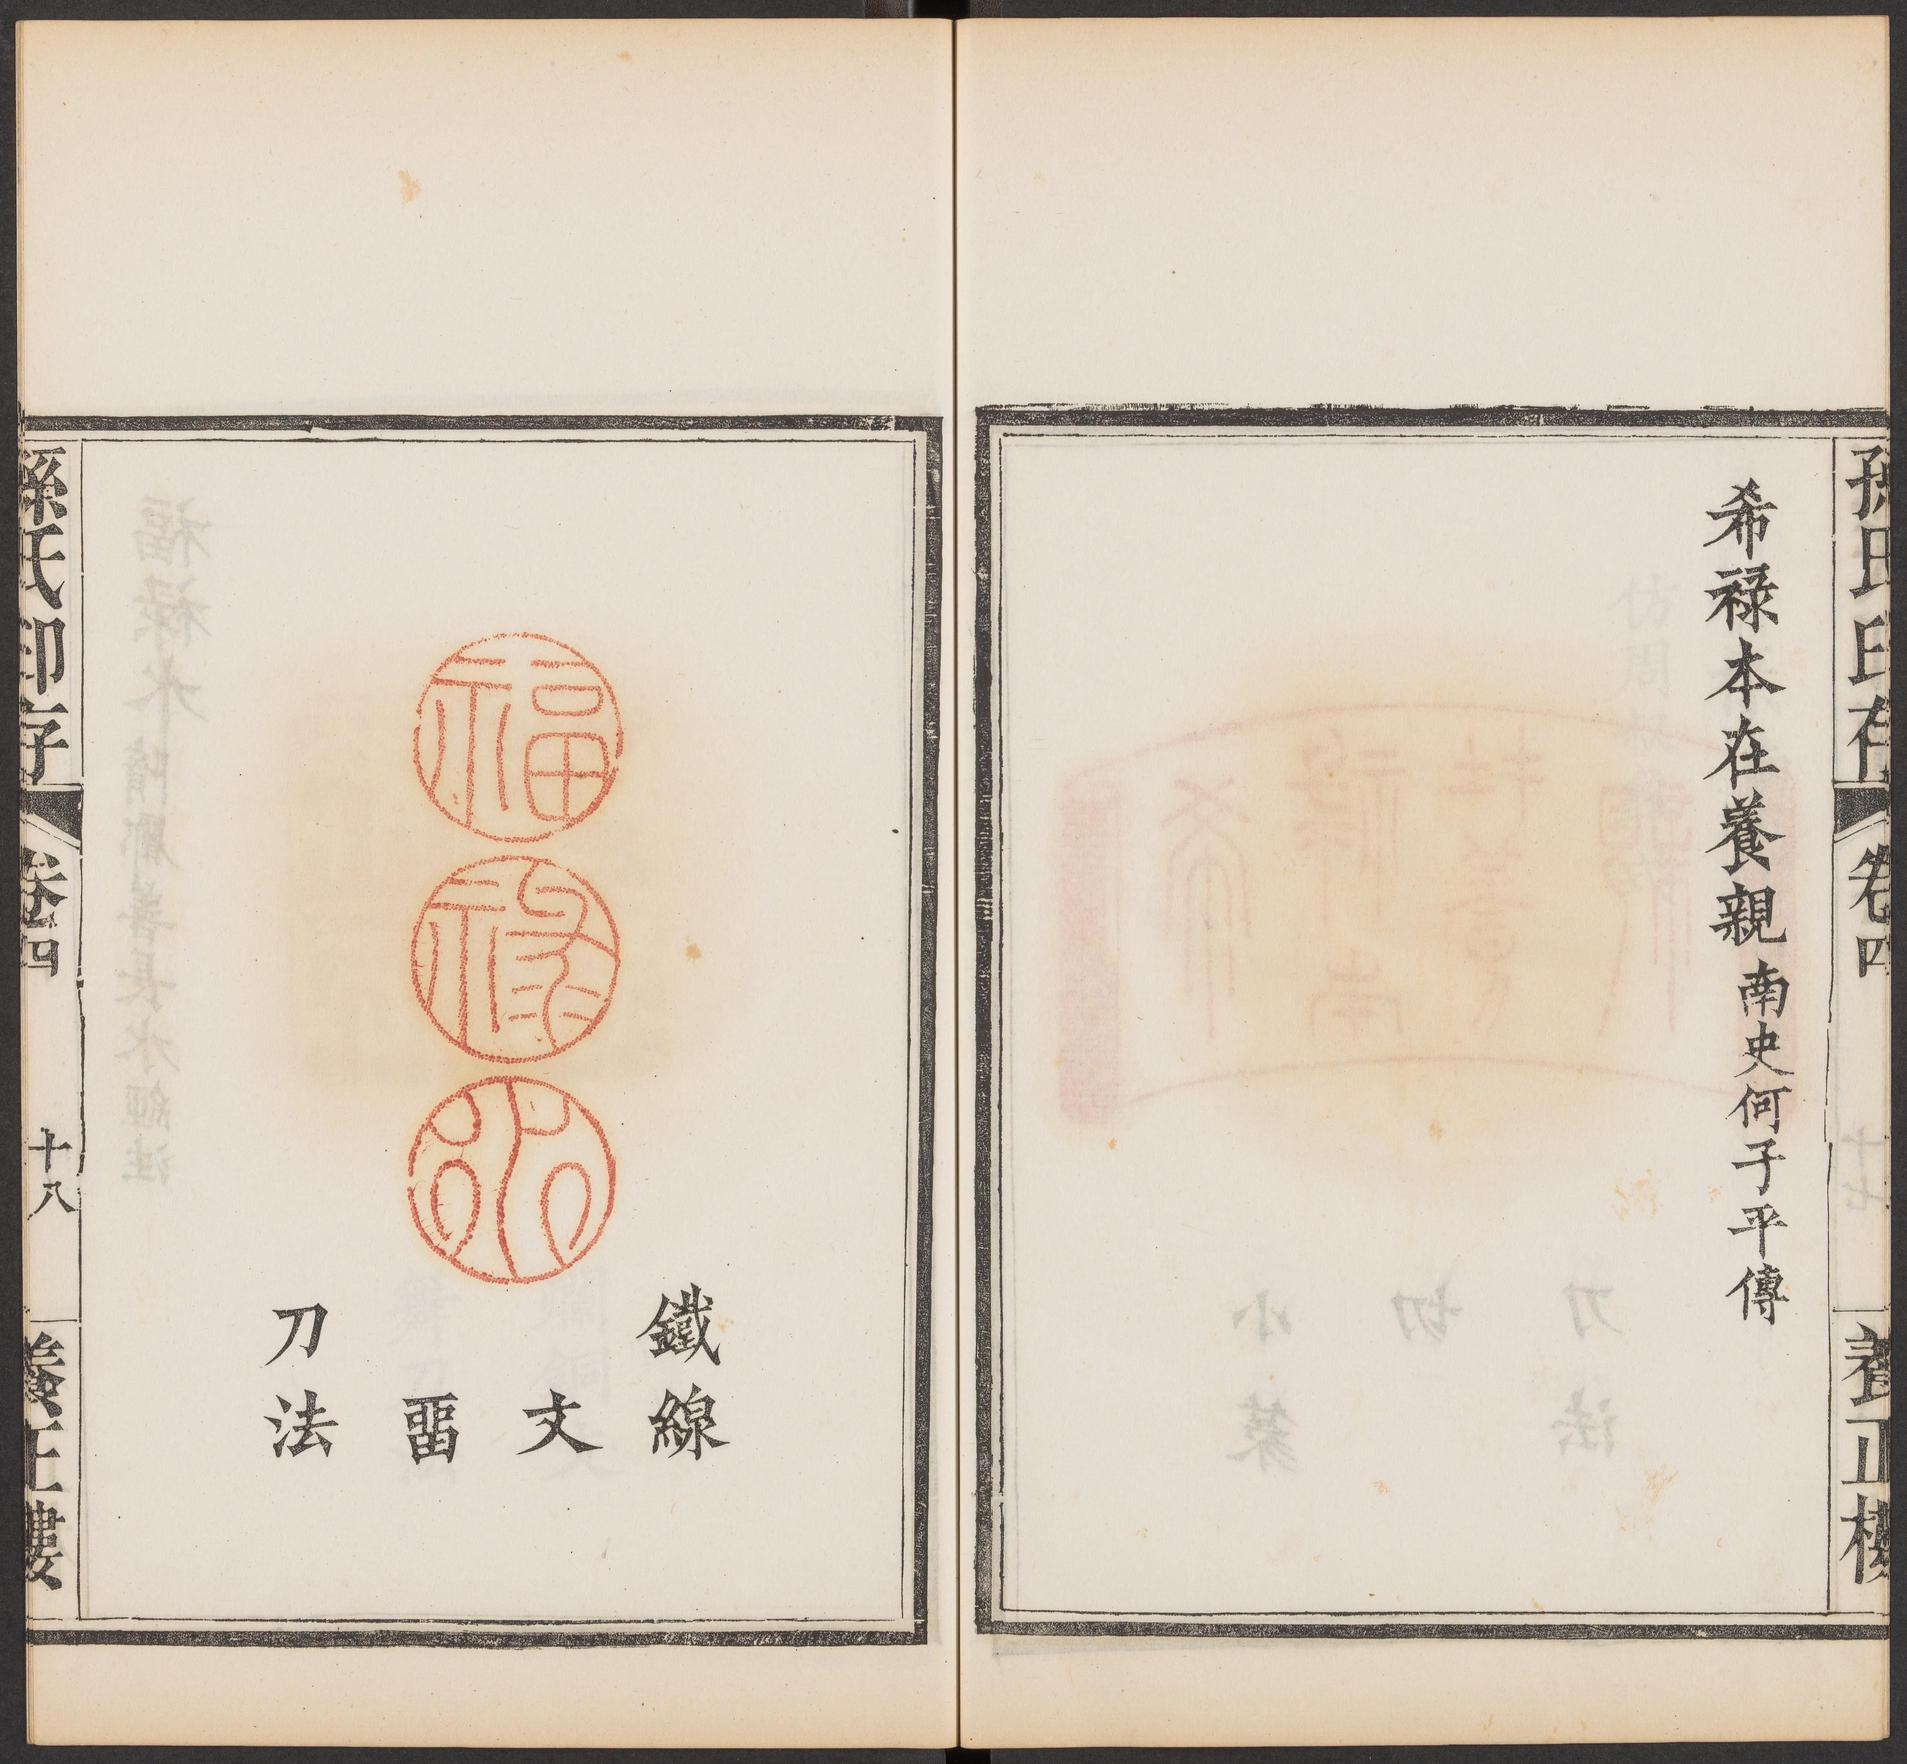 孫氏印存 卷四 養正樓
希祿本在養親 南史何子平傳
福
祿
水
鐵線
文
畱
刀法
孫氏印存 卷四 十八 養正樓